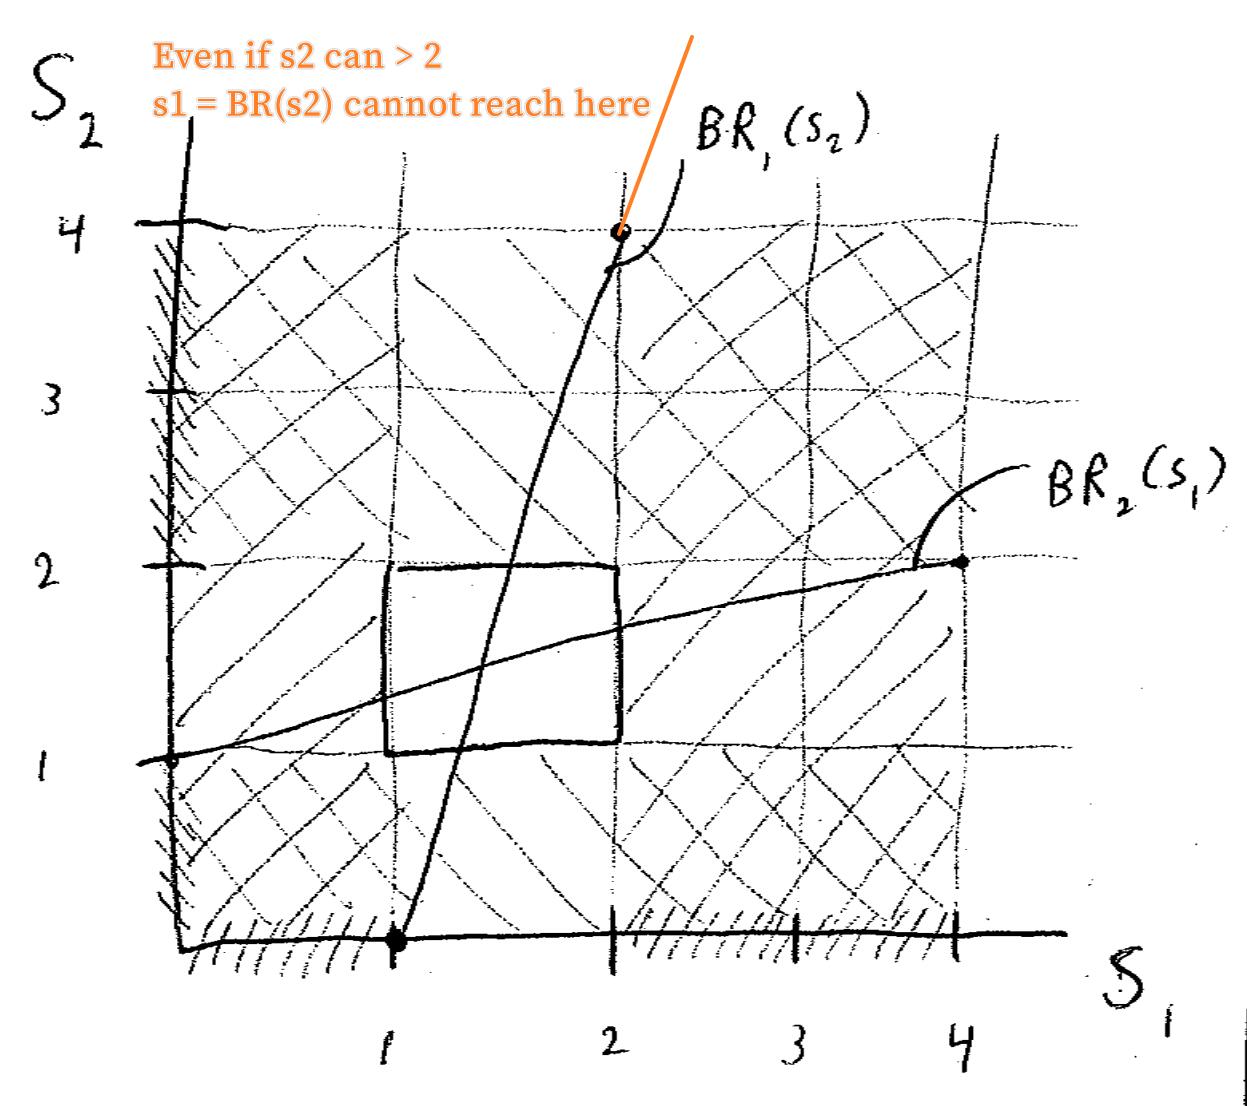 Even if s2 can > 2
s1 = BR(s2) cannot reach here
S₂
BR₁(S₂)
4
3
BR₂(S₁)
2
1
S₁
1 2 3 4